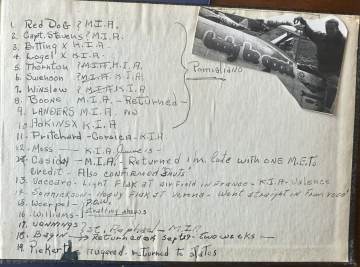 1. Red Dog ? M.I.A.
2. Capt. Stevens ? M.I.A.
3. Bitting X K.I.A.
4. Logel X K.I.A.
5. Thornton ? M.I.A. K.I.A.
6. Swenson ? M.I.A. K.I.A.
7. Winslow ? M.I.A. K.I.A
8. Boone M.I.A. - Returned -
9. LANDERS M.I.A.
10. HAKINS X K.I.A
11. Pritchard - Corsica - K.I.A.
12. Moss — K.I.A. June 15 -
Casidy - M.I.A. - Returned 1 m. late with one M.E.T.S
Credit - Also confirmed
13. Vaccaro - Light Flak at Airfield in France - K.I.A. Valence
14. Heavy Flak at Verona - Went straight in from 7000'
15. Woerpel - P.O.W.
16. Williams - Strafing
17. Jennings
St. Raphael - M.I.
18. Bagian Returned on Sept. - two weeks -
19. Piekart - returned to states
Pomigliano
Lady be good